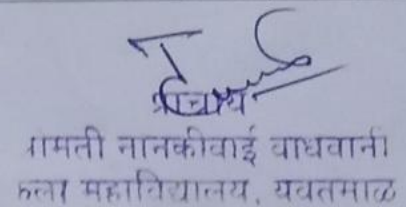 प्राचार्य
ामती नानकीबाई वाधवानी
कला महाविद्यालय, यवतमाळ